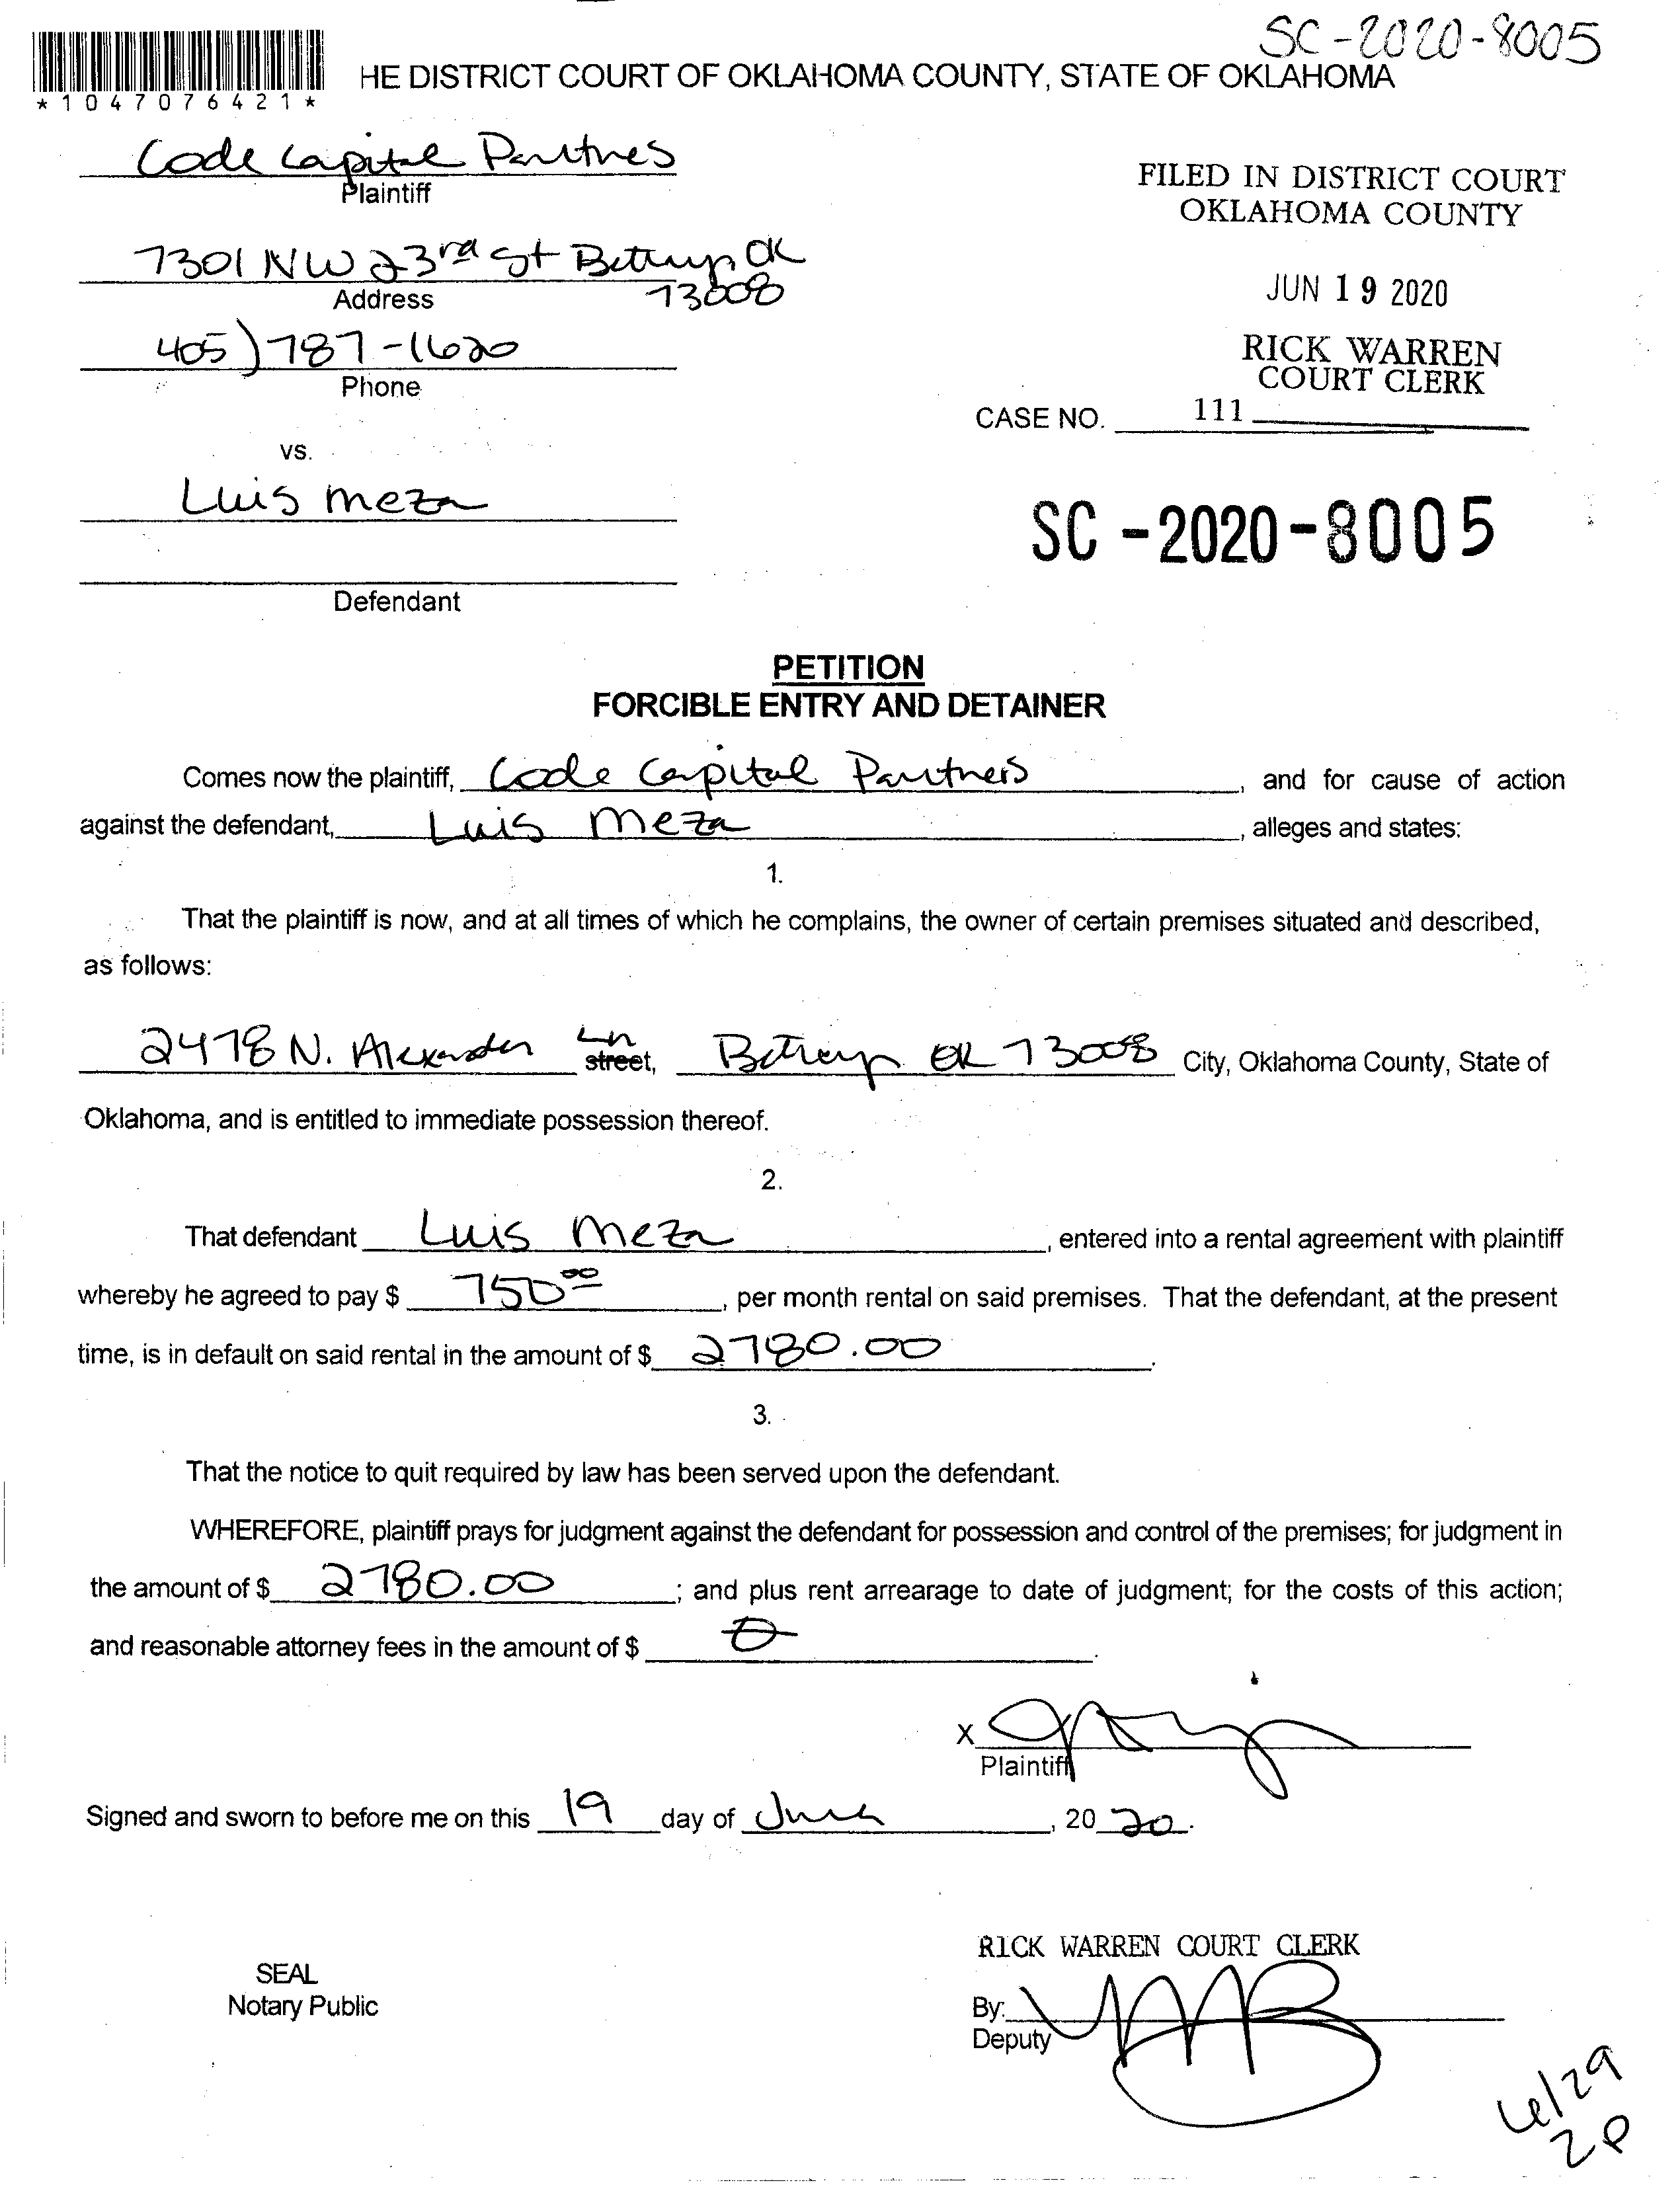 SC-2020-8005
*1047076421*
HE DISTRICT COURT OF OKLAHOMA COUNTY, STATE OF OKLAHOMA
Code Capital Partnes
Plaintiff
FILED IN DISTRICT COURT
OKLAHOMA COUNTY
7301 NW 23rd St Bethany OK
73008
Address
JUN 19 2020
405) 787-1620
Phone
RICK WARREN
COURT CLERK
CASE NO. 111
vs.
Luis Meza
SC-2020-8005
Defendant
PETITION
FORCIBLE ENTRY AND DETAINER
Comes now the plaintiff, Code Capital Partners, and for cause of action
against the defendant, Luis Meza, alleges and states:
1.
That the plaintiff is now, and at all times of which he complains, the owner of certain premises situated and described,
as follows:
2478 N. Alexander Ln street, Bethany OK 73008 City, Oklahoma County, State of
Oklahoma, and is entitled to immediate possession thereof.
2.
That defendant Luis Meza, entered into a rental agreement with plaintiff
whereby he agreed to pay $ 750.00, per month rental on said premises. That the defendant, at the present
time, is in default on said rental in the amount of $ 2780.00.
3.
That the notice to quit required by law has been served upon the defendant.
WHEREFORE, plaintiff prays for judgment against the defendant for possession and control of the premises; for judgment in
the amount of $ 2780.00; and plus rent arrearage to date of judgment; for the costs of this action;
and reasonable attorney fees in the amount of $ 0.
X
Plaintiff
Signed and sworn to before me on this 19 day of June, 20 20.
RICK WARREN COURT CLERK
SEAL
Notary Public
By:
Deputy
6/29
2P